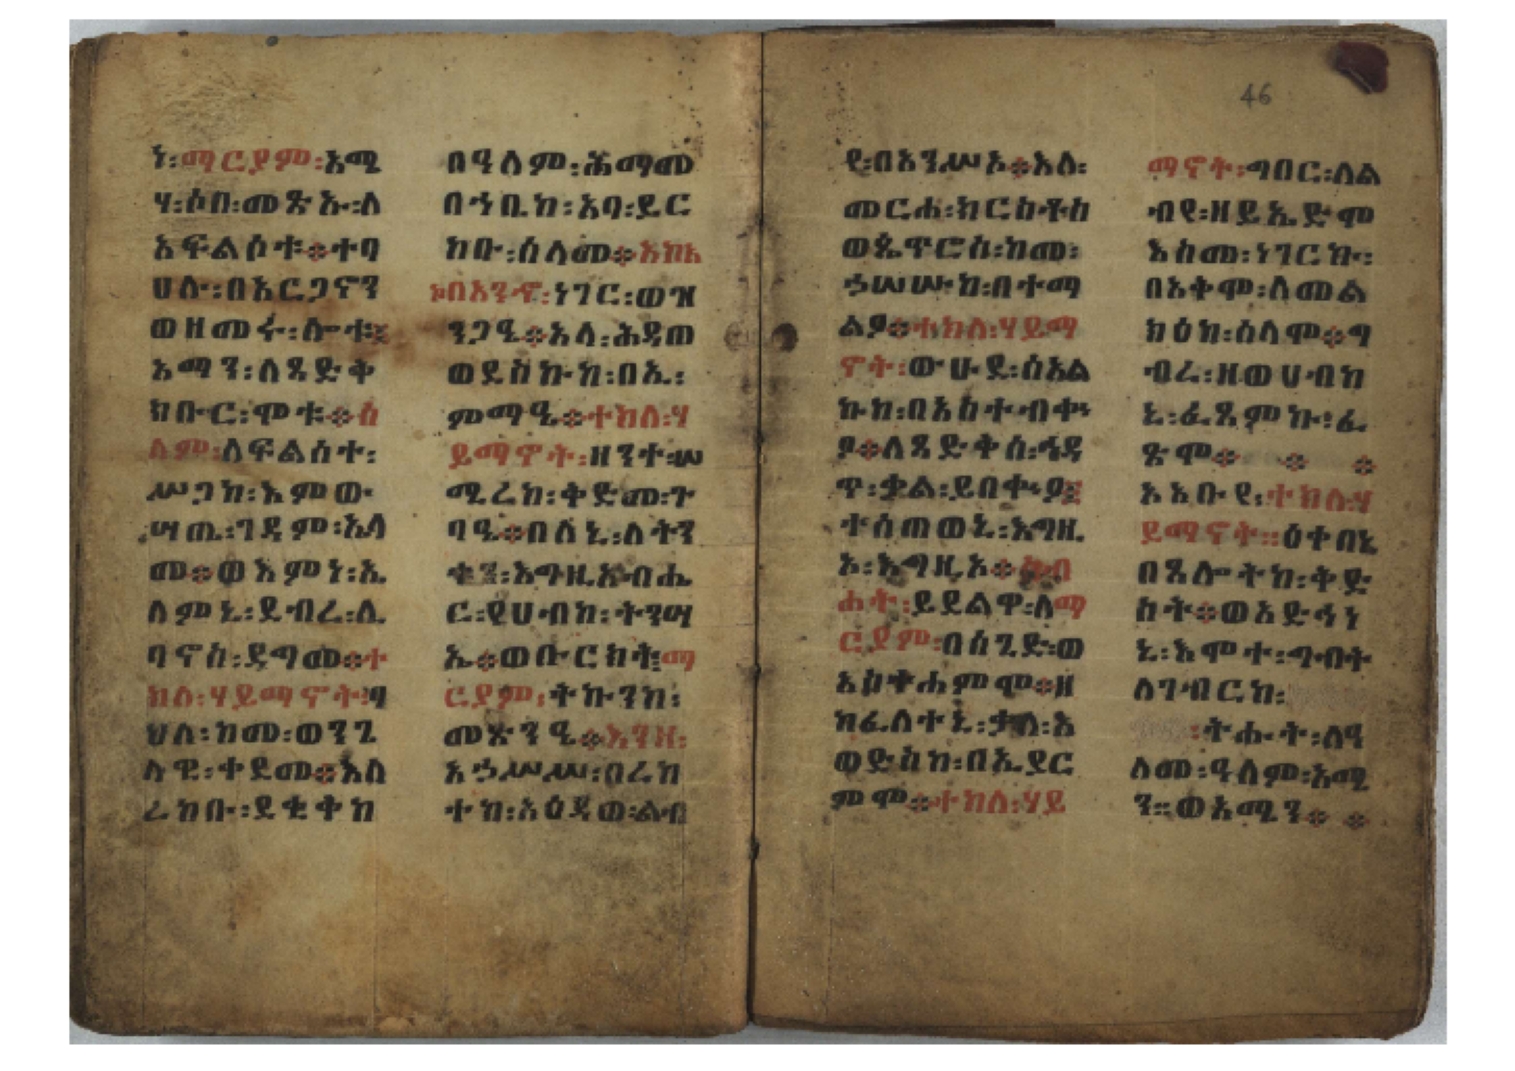 46
ነ፡ማርያም፡አሜ
ሃ፡ሶበ፡መጽኡ፡ለ
አፍልሶቱ፨ተባ
ሀሉ፡በአርጋኖን
ወዘመሩ፡ሎቱ፤
አማን፡ለጻድቅ
ክቡር፡ሞቱ፨ሰ
ላም፡ለፍልሰተ፡
ሥጋከ፡እምው
ሣጢ፡ገዳም፡አላ
መ፨ወእምነ፡ኢ
ለምኒ፡ደብረ፡ሊ
ባኖስ፡ዳግመ፨ተ
ክለ፡ሃይማኖት፡ባ
ሀለ፡ከመ፡ወንጌ
ላዊ፡ቀደመ፨እለ
ረከቡ፡ደቂቅከ
በዓለም፡ሕማመ
በኀቤከ፡አባ፡ይር
ከቡ፡ሰላመ፨አኮአ
ኮበአንኖ፡ነገር፡ወዝ
ንጋዔ፨አላ፡ሕዳጠ
ወደስኩከ፡በኢ፡
ምማዔ፨ተክለ፡ሃ
ይማኖት፡ዘንተ፡ሠ
ሚረከ፡ቅድመ፡ጉ
ባዔ፨በለኒ፡ለትን
ቱን፡እግዚአብሔ
ር፡የሀብከ፡ትንሣ
ኤ፨ወቡርክት፡ማ
ርያም፡ትኩንከ፡
መጽንዔ፨እንዘ፡
አኃሥሥ፡በረከ
ተከ፡አዕዳወ፡ልብ
የ፡በአንሥኦ፨እለ፡
መርሐ፡ክርስቶስ
ወጴጥሮስ፡ከመ፡
ኃሠሡከ፡በተማ
ልዖ፨ተክለ፡ሃይማ
ኖት፡ውሁደ፡ሰአል
ኩከ፡በአስተብቍ
ዖ፨ለጻድቅሰ፡ኅዳ
ጥ፡ቃል፡ይበቍዖ፤
ተሰጠወኒ፡እግዚ
ኦ፡እግዚኦ፨ስብ
ሐት፡ይደልዋ፡ለማ
ርያም፡በሰጊድ፡ወ
አስተሐምሞ፨ዘ
ከፈለተኒ፡ቃለ፡እ
ወድስከ፡በኢያር
ምሞ፨ተክለ፡ሃይ
ማኖት፡ግበር፡ለል
ብየ፡ዘይኤድሞ
እስመ፡ነገርኩ፡
በአቅሞ፡ለመል
ክዕከ፡ሰላሞ፨ግ
ብረ፡ዘወሀብከ
ኒ፡ፈጺምኩ፡ፈ
ጽሞ፨ ፨ ፨
ኦአቡየ፡ተክለ፡ሃ
ይማኖት፡፡ዕቀበኒ
በጸሎትከ፡ቅድ
ስት፨ወአድኅነ
ኒ፡እሞተ፡ግብት
ለገብርከ፡
፡ትሑት፡ለዓ
ለመ፡ዓለም፡አሜ
ን፡፡ወአሜን፨ ፨